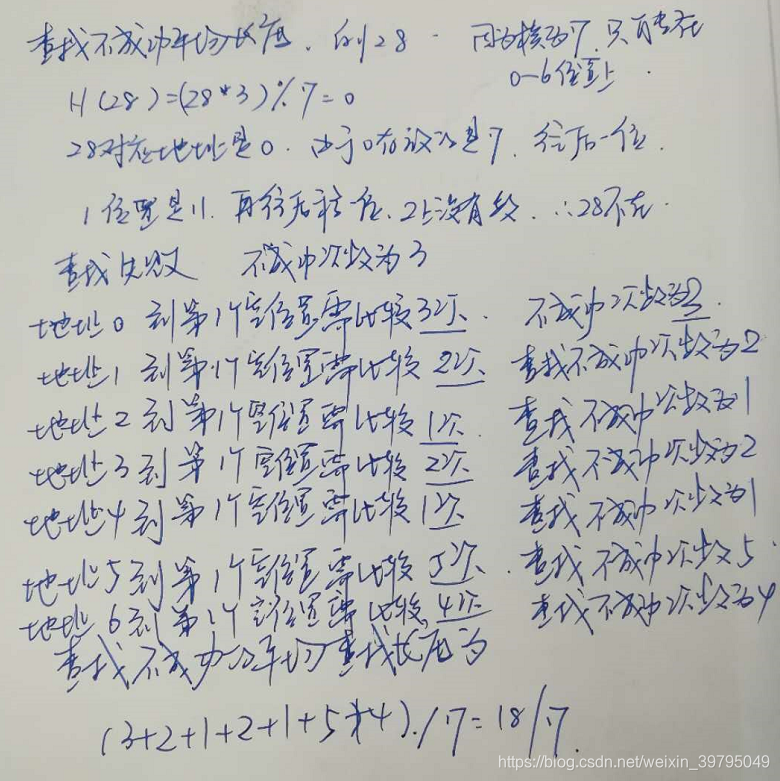 查找不成功平均长度, 例28. 因为模为7, 只可能在
0-6位置上.
H(28)=(28*3)%7=0
28对应地址是0. 由于0存放的是7, 往后一位.
1位置是11. 再往后移一位, 2上没有数. ∴28不在.
查找失败 不成功次数为3
地址0到第1个空位置需比较3次. 不成功次数为3.
地址1到第1个空位置需比较2次 查找不成功次数为2
地址2到第1个空位置需比较1次. 查找不成功次数为1
地址3到第1个空位置需比较2次 查找不成功次数为2
地址4到第1个空位置需比较1次 查找不成功次数为1
地址5到第1个空位置需比较5次. 查找不成功次数5.
地址6到第1个空位置需比较4次 查找不成功次数为4
查找不成功的平均查找长度为
(3+2+1+2+1+5+4)./7=18/7.
https://blog.csdn.net/weixin_39795049